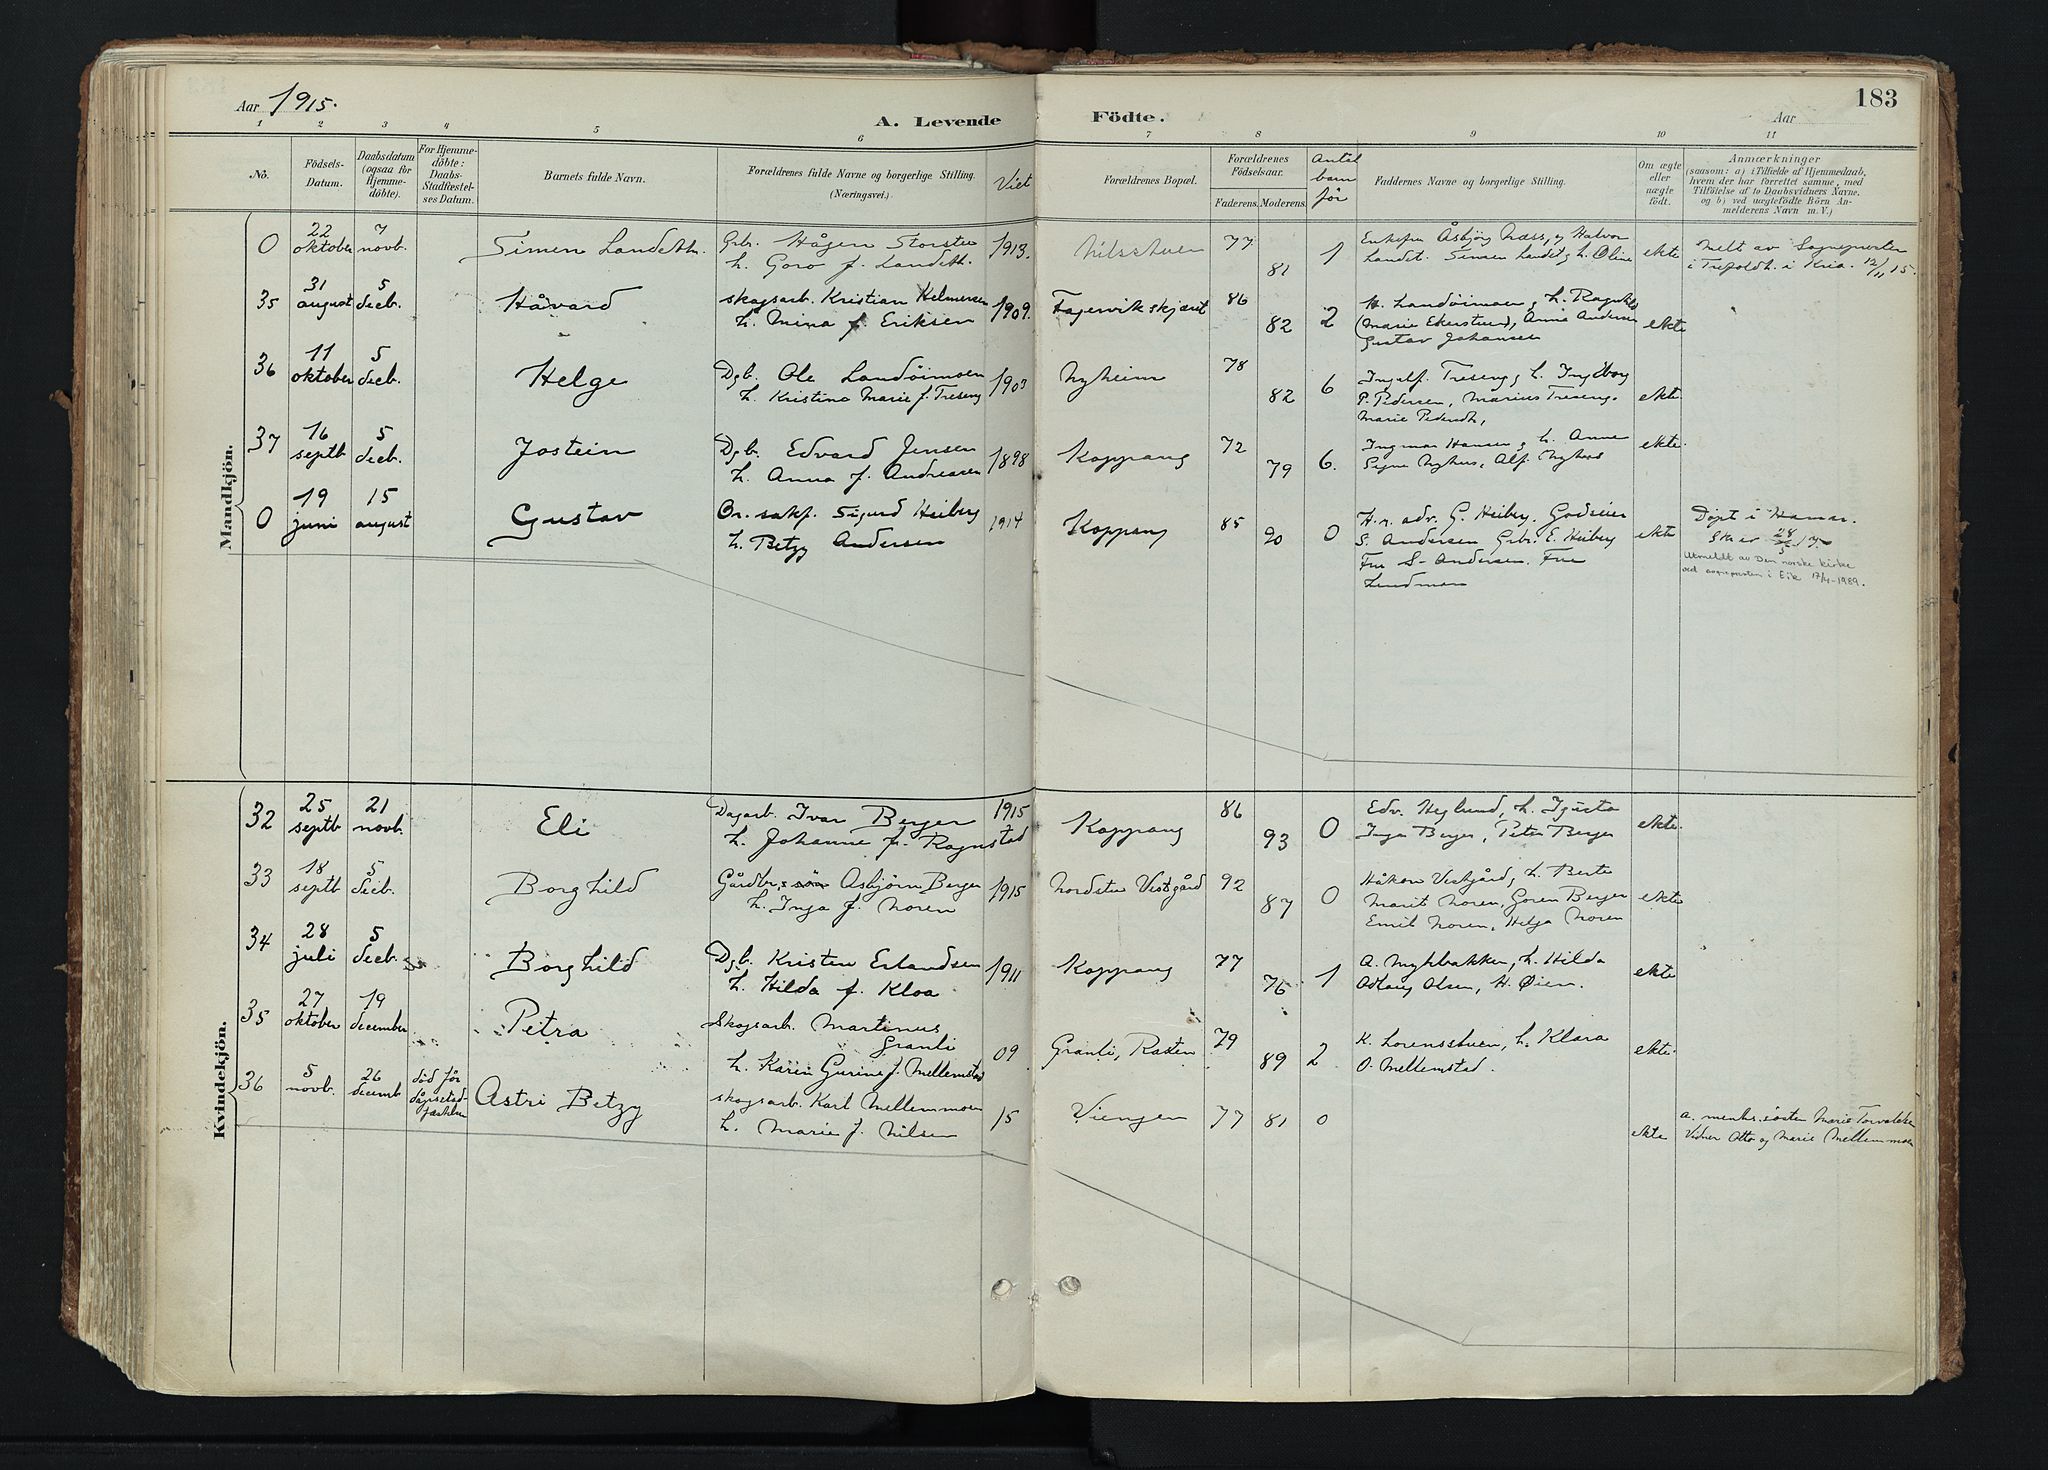 Aar 1915.
A. Levende Födte.
Aar
183
1 2 3 4 5 6 7 8 9 10 11
No.
Födsels-Datum.
Daabsdatum (ogsaa for Hjemme-döbte).
For Hjemme-döbte: Daabs-Stadfæstel-ses Datum.
Barnets fulde Navn.
Forældrenes fulde Navne og borgerlige Stilling. (Næringsvei.)
Viet
Forældrenes Bopæl.
Forældrenes Födselsaar.
Faderens. Moderens.
Antal barn før
Faddernes Navne og borgerlige Stilling.
Om ægte eller uægte födt.
Anmærkninger
(saasom: a) i Tilfælde af Hjemmedaab,
hvem der har forrettet samme, med
Tilföielse af to Daabsvidners Navne.
og b) ved uægtefödte Börn An-
melderens Navn m. V.)
Mandkjön.
0 22 oktober 7 novb. Simen Landeth. Grb. Hågen Storstu
h. Goro f. Landeth. 1913. Nilsstuen 77 81 1
Enkefru Åsbjörg Næss, og Halvor
Landet. Simen Landet og h. Oline
ekte
Melt av Sognepresten
i Trefoldh. i Kria. 12/11 15.
35 31 august 5 decb. Håvard skogsarb. Kristian Helmersen
h. Mina f. Eriksen 1909. Fagervikskjæret 86 82 2
H. Landöimoen og h. Ragnhild
(Marie Ekerstuen), Anna Andersen
Gustav Johansen
ekte
36 11 oktober 5 decb. Helge Dgb. Ole Landöimoen
h. Kristine Marie f. Treseng 1903 Nyheim 78 82 6
Ingolf Treseng, h. Ingeborg
P. Pedersen, Marius Treseng.
Marie
ekte.
37 16 septb 5 decb. Jostein Dgb. Edvard Jensen
h. Anna f. Andreasen 1898 Koppang 72 79 6.
Ingmar Hansen og h. Anne
Signe Nyhus, Alf. Nyhus
ekte.
0 19 juni 15 august Gustav Or. sakf. Sigurd Heiberg
h. Betzy Andersen 1914 Koppang 85 90 0
H. r. adv. G. Heiberg. Godseier
S. Andersen Grbr. E. Heiberg
Fru S. Andersen. Fru
Lundman
ekte
Döpt i Hamar.
Utmeldt av Den norske kirke
ved sogneprsten i Eik 17/4-1989.
Kvindekjön.
32 25 septb 21 novb. Eli Dagarb. Ivar Berger
h. Johanne f. Rognstad 1915 Koppang 86 93 0
Edv. Heglund, h. Igusta
Inga Berger, Peter Berger
ekte.
33 18 septb 5 decb. Borghild Gårdbr.s sön Asbjörn Berger
h. Inga f. Noren 1915 Nordstu Vestgård 92 87 0
Håkon Vestgård, h. Berte
Marit Noren, Goren Berger
Emil Noren, Helga Noren
ekte
34 28 juli 5 decb. Borghild Dgb. Kristen Erlandsen
h. Hilda f. Kloa 1911 Koppang 77 76 1
A. Myhlbakken, h. Hilda
Aslaug Olsen, H. Øien.
ekte
35 27 oktober 19 december Petra Skogsarb. Martinus
Granli
h. Karen Gurine f. Mellemstad 09 Granli, Rasten 79 89 2
K. Lorensstuen, h. Klara
O. Mellemstad.
ekte.
36 5 novb. 26 decemb død før Astri Betzy skogsarb. Karl Mellemmoen
h. Marie f. Nilsen 15 Viengen 77 81 0
ekte
a. menh. söster Marie Torvaldsen
Vidner Otto og Marie Mellemmoen